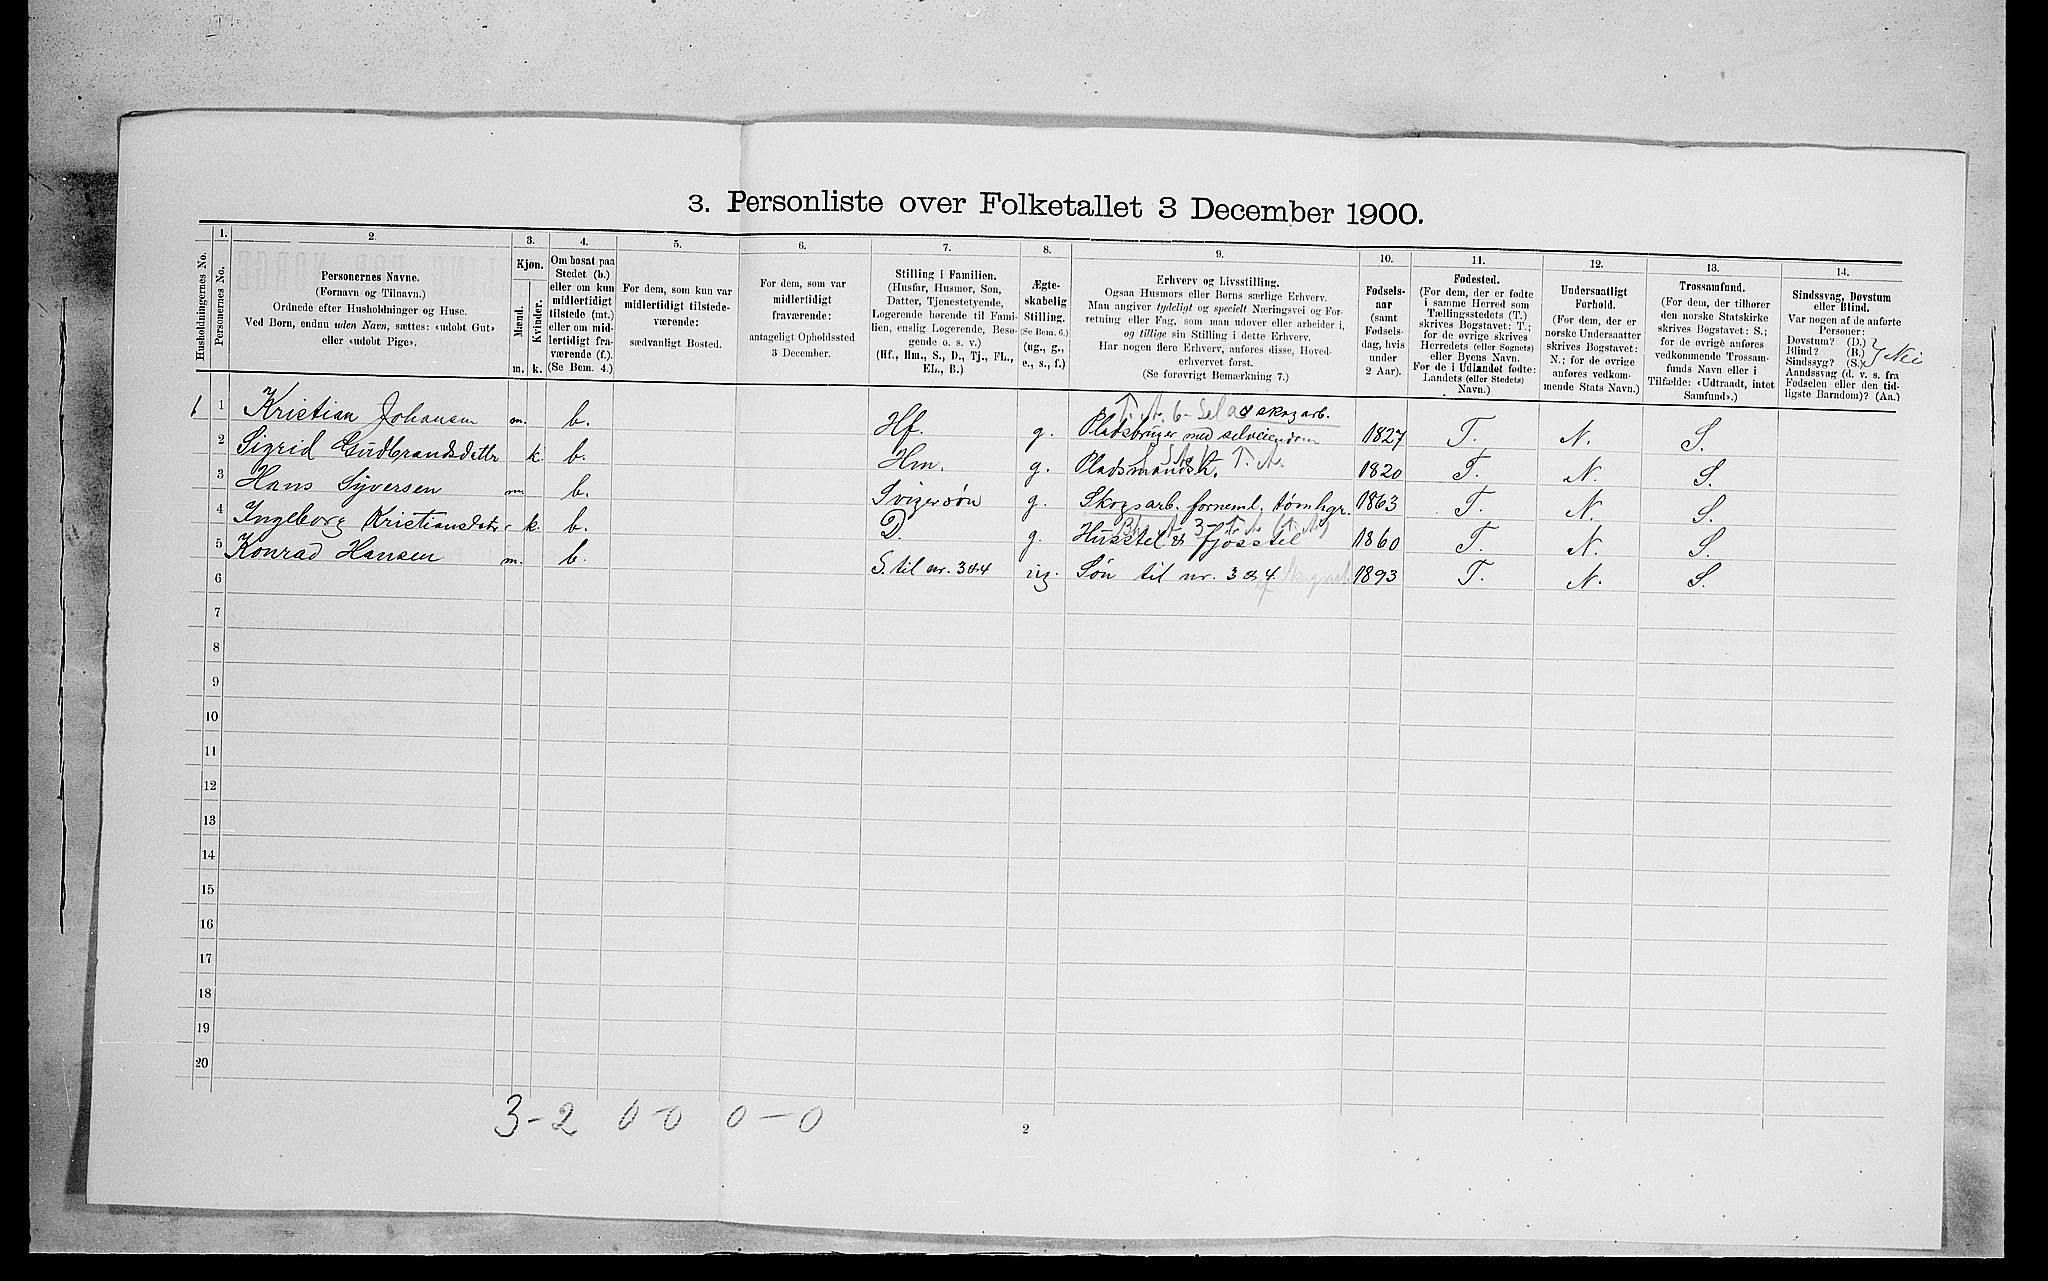 3. Personliste over Folketallet 3 December 1900.
1. 2. 3. 4. 5. 6. 7. 8. 9. 10. 11. 12. 13. 14.
Husholdningernes No.
Personernes No.
Personernes Navne.
(Fornavn og Tilnavn.)
Ordnede efter Husholdninger og Huse.
Ved Børn, endnu uden Navn, sættes: «udøbt Gut»
eller «udøbt Pige».
Kjøn.
Mænd.
Kvinder.
m. k.
Om bosat paa
Stedet (b.)
eller om kun
midlertidigt
tilstede (mt.)
eller om mid-
lertidigt fra-
værende (f.).
(Se Bem. 4.)
For dem, som kun var
midlertidigt tilstede-
værende:
sædvanligt Bosted.
For dem, som var
midlertidigt
fraværende:
antageligt Opholdssted
3 December.
Stilling i Familien.
(Husfar, Husmor, Søn,
Datter, Tjenestetyende,
Logerende hørende til Fami-
lien, enslig Logerende, Besø-
gende o. s. v.)
(Hf., Hm., S., D., Tj., FL.,
EL., B.)
Ægte-
skabelig
Stilling.
(Se Bem. 6.)
(ug., g.,
e., s., f.)
Erhverv og Livsstilling.
Ogsaa Husmors eller Børns særlige Erhverv.
Man angiver tydeligt og specielt Næringsvei og For-
retning eller Fag, som man udøver eller arbeider i,
og tillige sin Stilling i dette Erhverv.
Har nogen flere Erhverv, anføres disse, Hoved-
erhvervet først.
(Se forøvrigt Bemærkning 7.)
Fødsels-
aar
(samt
Fødsels-
dag, hvis
under
2 Aar).
Fødested.
(For dem, der er fødte
i samme Herred som
Tællingsstedets (T.)
skrives Bogstavet: T.;
for de øvrige skrives
Herredets (eller Sognets)
eller Byens Navn.
For de i Udlandet fødte:
Landets (eller Stedets)
Navn.)
Undersaatligt
Forhold.
(For dem, der er
norske Undersaatter
skrives Bogstavet:
N.; for de øvrige
anføres vedkom-
mende Stats Navn.)
Trossamfund.
(For dem, der tilhører
den norske Statskirke
skrives Bogstavet: S.;
for de øvrige anføres
vedkommende Trossam-
funds Navn eller i
Tilfælde: «Udtraadt, intet
Samfund».)
Sindssvag, Døvstum
eller Blind.
Var nogen af de anførte
Personer:
Døvstum? (D.)
Blind? (B.) Nei
Sindssyg? (S.)
Aandssvag (d. v. s. fra
Fødselen eller den tid-
ligste Barndom)? (Aa.)
& skogarb.
1 1 Kristian Johansen m. b. Hf. g. Pladsbruger med selveiendom 1827 T. N. S.
2 Sigrid Gudbrandsdattr k. b. Hm. g. Pladsmandsk. 1820 T. N. S.
3 Hans Syversen m. b. Svigersøn g. Skogsarb. forneml. tømhgr. 1863 T. N. S.
4 Ingeborg Kristiansdatr k. b. D. g. Husstel & fjøsstel 1860 T. N. S.
5 Konrad Hansen m. b. S. til nr. 3&4 ug. Søn til nr. 3 & 4. 1893 T. N. S.
6
7
8
9
10
11
12
13
14
15
16
17
18
19
20
3-2 0-0 0-0
2